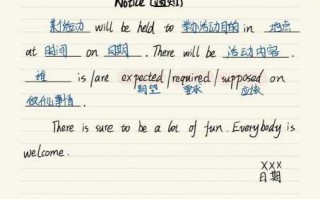 Notice (通知)
某活动 will be held to 举办活动目的 in 地点
at 时间 on 日期. There will be 活动内容.
谁 is/are expected/required/supposed on
期望 要求 应该
做什么事情.
There is sure to be a lot of fun. Everybody is
welcome.
XXX
日期